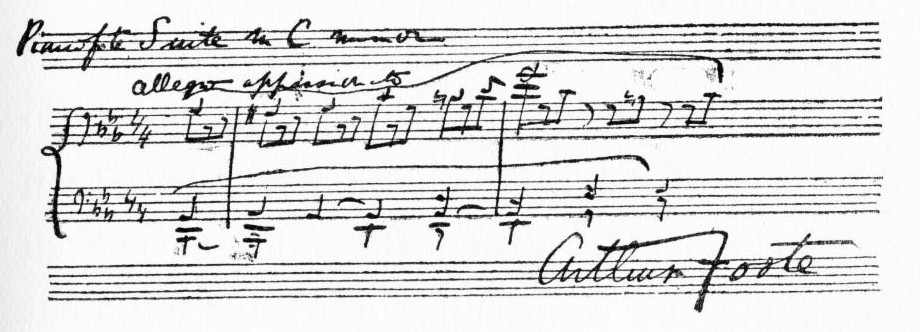 Pianofte Suite in C minor
allegro appassionato
Arthur Foote